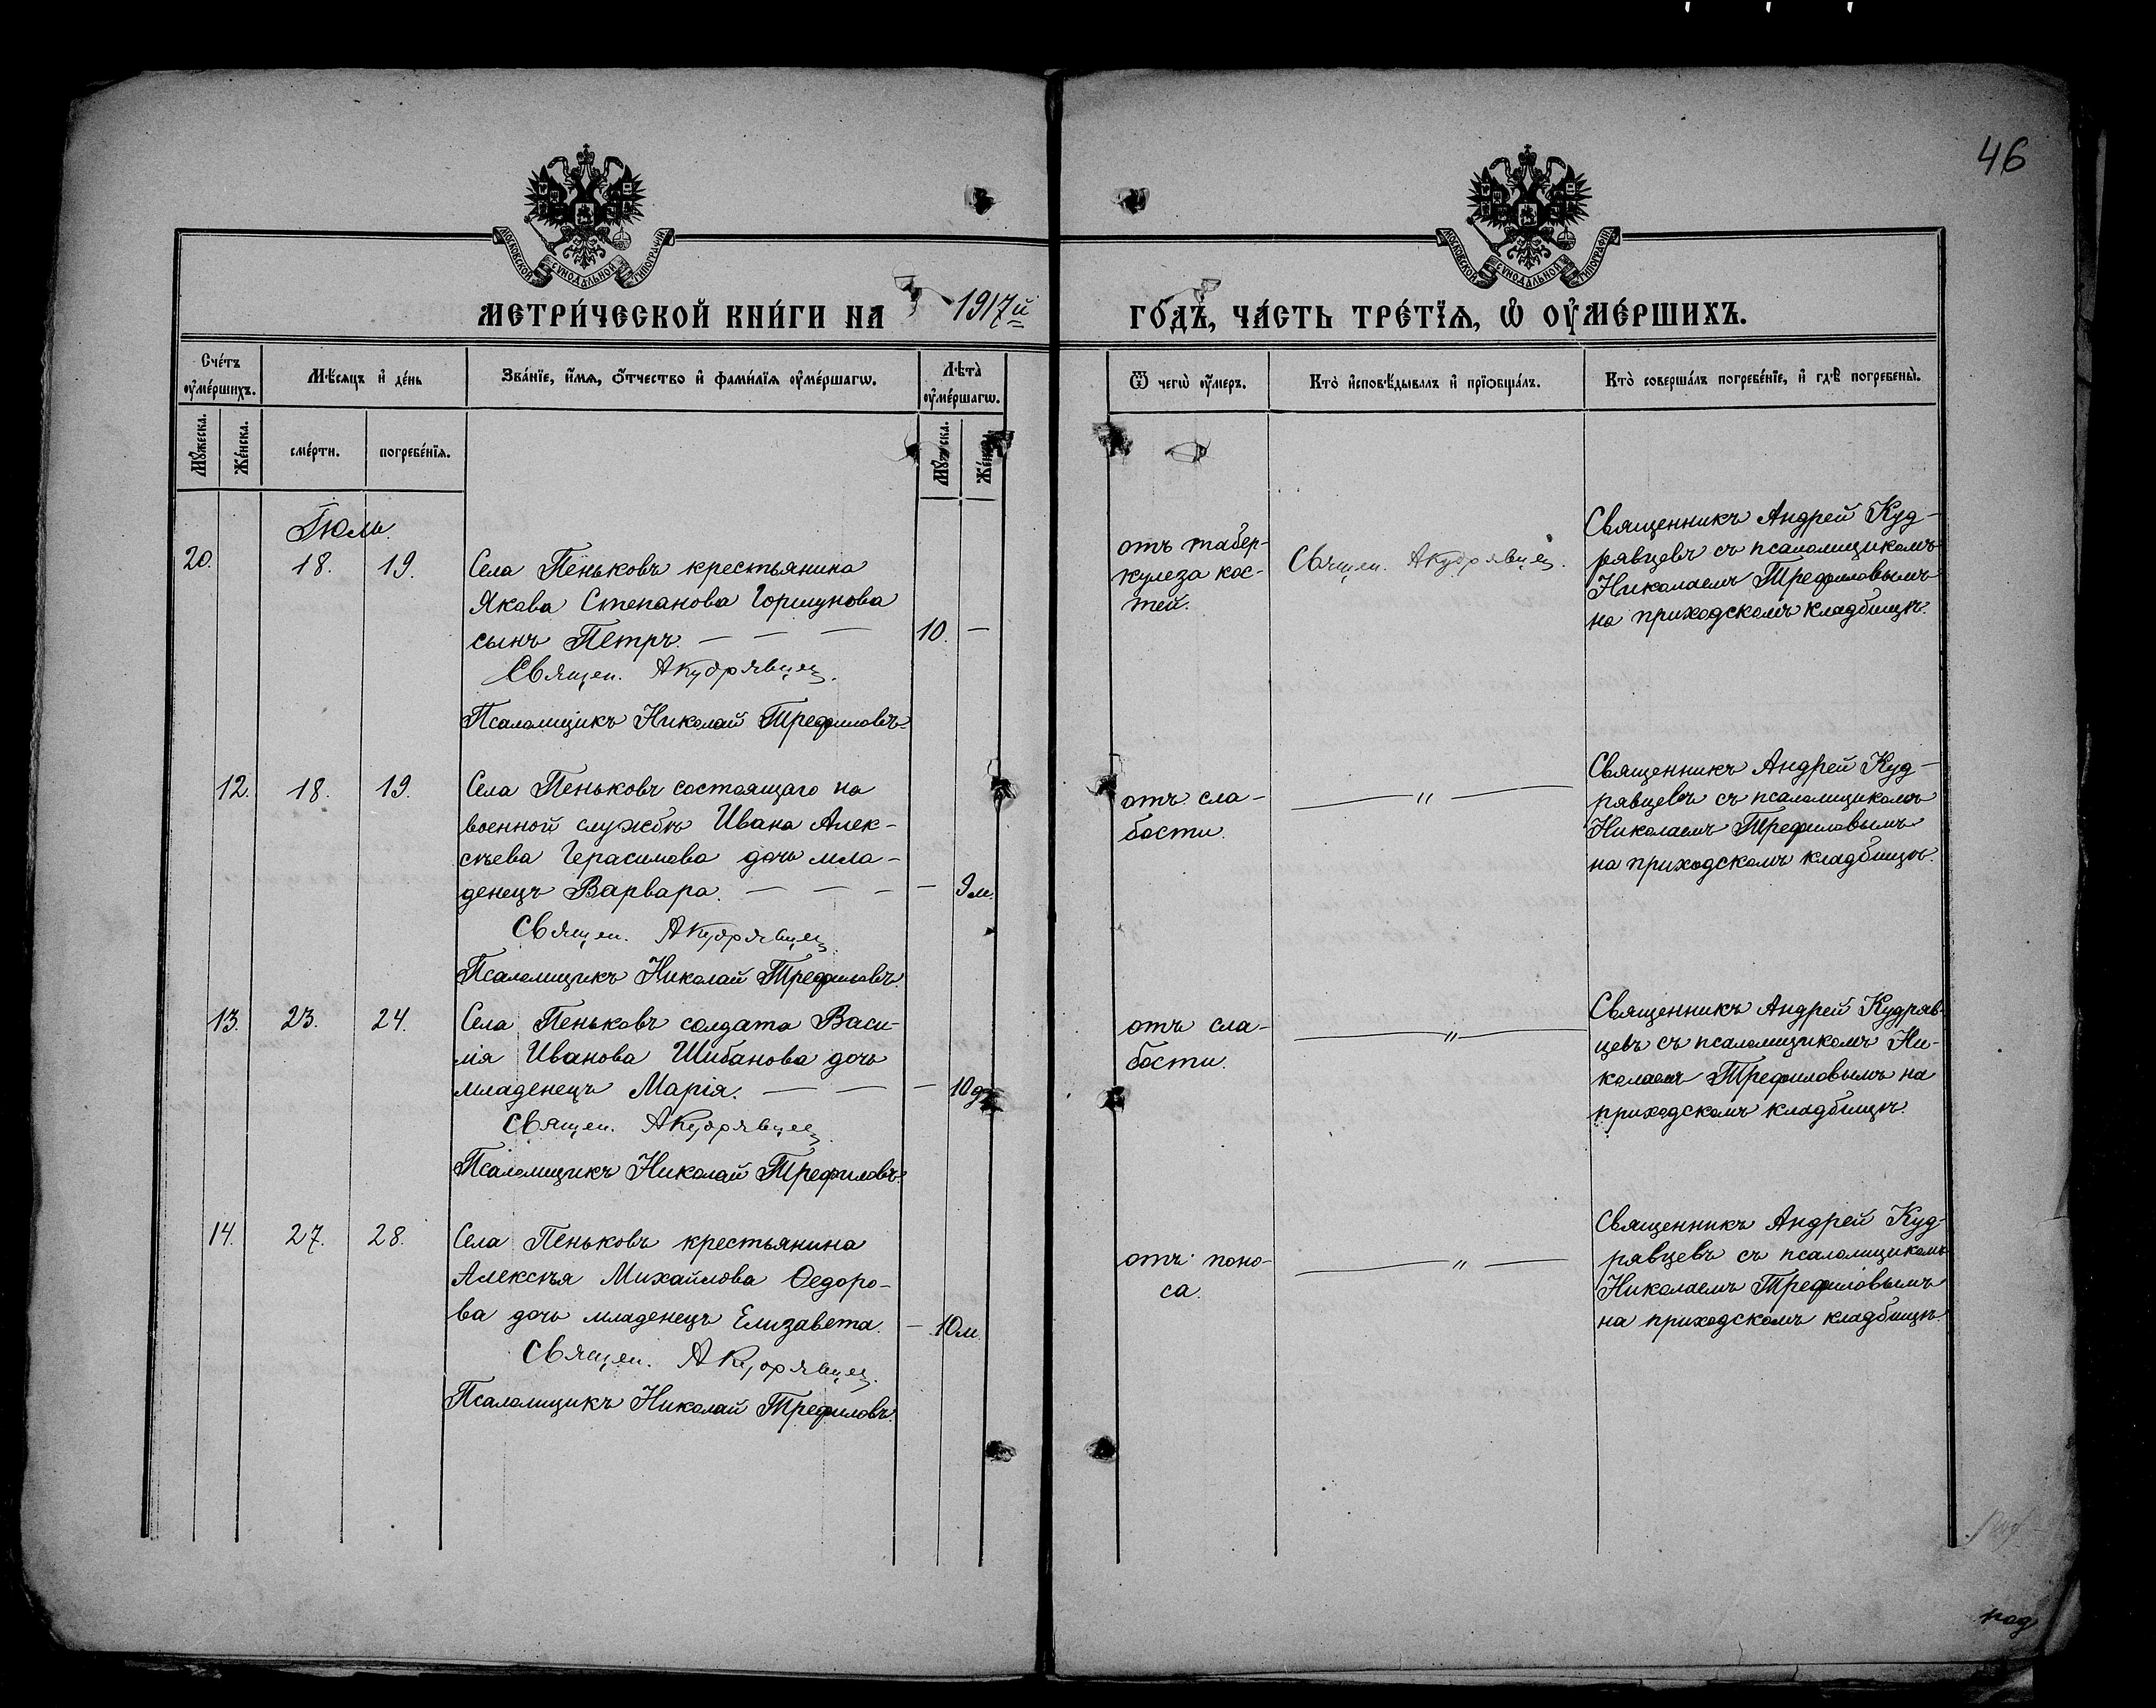 46
МОСКОВСКОЙ СѴНОДАЛЬНОЙ ТИПОГРАФІИ
МОСКОВСКОЙ СѴНОДАЛЬНОЙ ТИПОГРАФІИ
МЕТРИ́ЧЕСКОЙ КНИ́ГИ НА 1917й
ГО́ДЪ, ЧА́СТЬ ТРЕ́ТЇѦ, Ѽ ОУМЕ́РШИХЪ.
Сче́тъ оумершихъ.
Мѣ́сяцъ и де́нь
Зва́нїе, и́мѧ, о́тчество и фами́лїѧ оуме́ршагѡ.
Лѣта̀ оуме́ршагѡ.
Ѿ чегѡ̀ оу́меръ.
Кто̀ исповѣ́дывалъ и прїѡбща́лъ.
Кто̀ соверша́лъ погребе́нїе, и гдѣ̀ погребены̀.
Мꙋжеска.
Же́нска.
сме́рти.
погребе́нїѧ.
Мꙋжеска.
Же́нска.
Іюль.
20. 18. 19. Села Пеньковъ крестьянина
Якова Степанова Горшунова
сынъ Петръ. — — — 10. —
Священ. АКудрявцев.
Псаломщикъ Николай Трефиловъ.
отъ табер-
кулеза кос-
тей.
Священ. АКудрявцев.
Священникъ Андрей Куд-
рявцевъ съ псаломщикомъ
Николаемъ Трефиловымъ
на приходскомъ кладбищѣ.
12. 18. 19. Села Пеньковъ состоящаго на
военной службѣ Ивана Алек-
сѣева Герасимова дочь мла-
денецъ Варвара. — — — — 9 м.
Священ. АКудрявцев.
Псаломщикъ Николай Трефиловъ.
отъ сла-
бости.
— " —
Священникъ Андрей Куд-
рявцевъ съ псаломщикомъ
Николаемъ Трефиловымъ
на приходскомъ кладбищѣ.
13. 23. 24. Села Пеньковъ солдата Васи-
лія Иванова Шибанова дочь
младенецъ Марія. — — — 10 д.
Священ. АКудрявцев.
Псаломщикъ Николай Трефиловъ.
отъ сла-
бости.
— " —
Священникъ Андрей Кудряв-
цевъ съ псаломщикомъ Ни-
колаемъ Трефиловымъ на
приходскомъ кладбищѣ.
14. 27. 28. Села Пеньковъ крестьянина
Алексѣя Михайлова Ѳедоро-
ва дочь младенецъ Елизавета. — 10 м.
Священ. АКудрявцев.
Псаломщикъ Николай Трефиловъ.
отъ поно-
са.
— " —
Священникъ Андрей Куд-
рявцевъ съ псаломщикомъ
Николаемъ Трефиловымъ
на приходскомъ кладбищѣ.